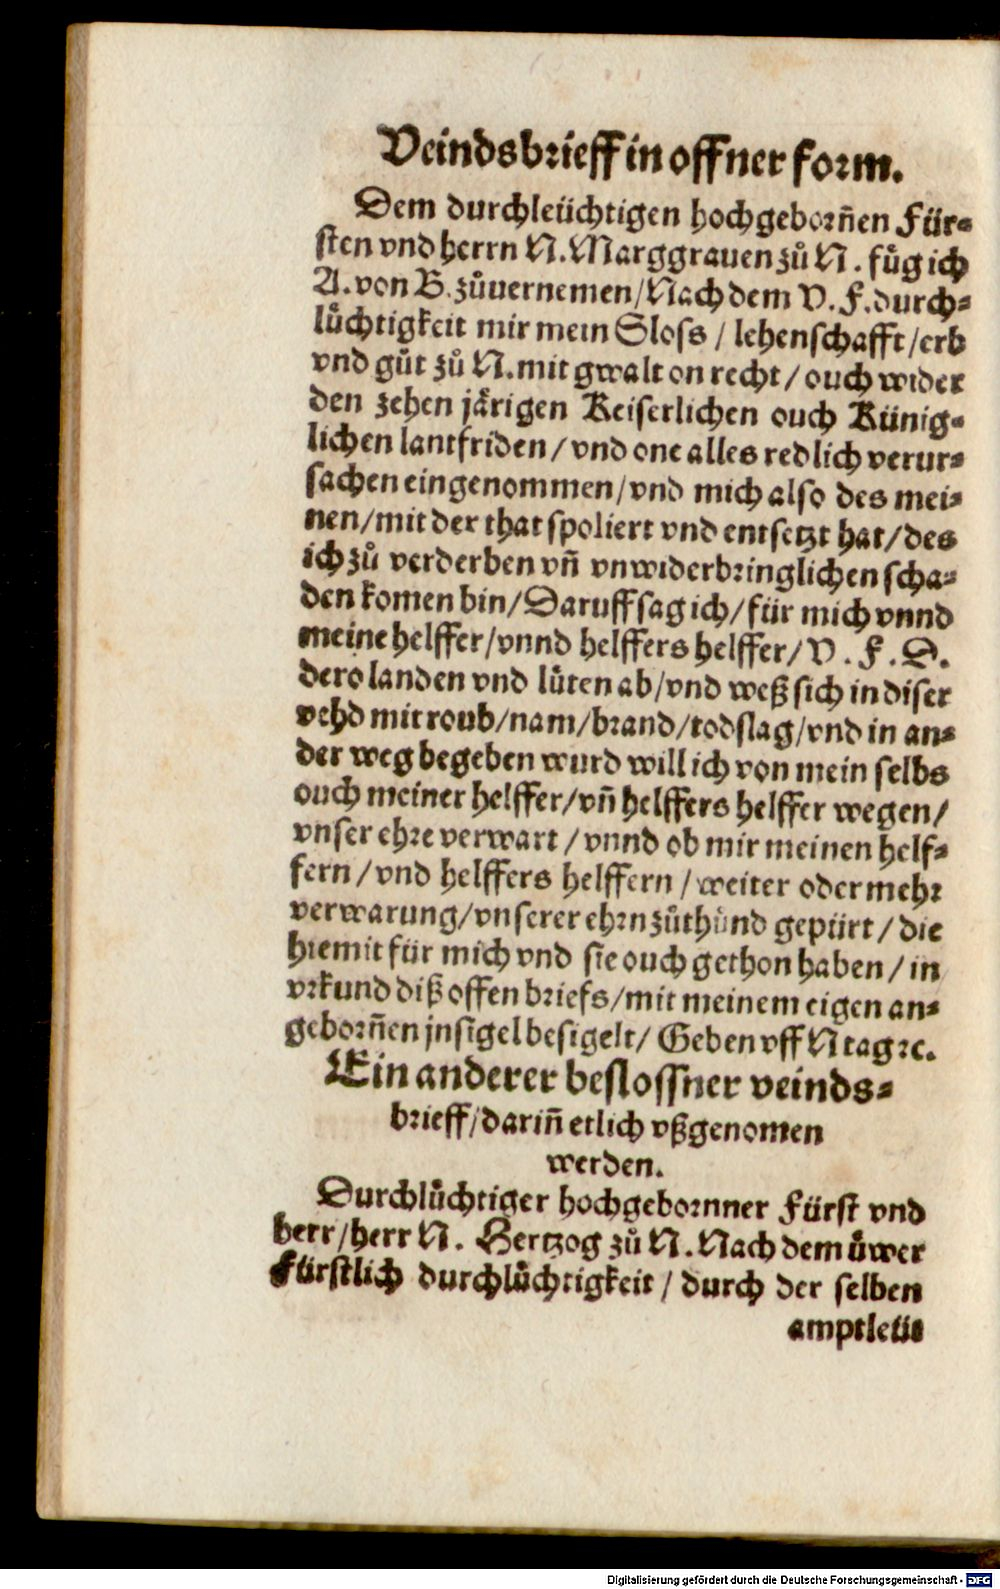 Veindsbrieff in offner form.
Dem durchleüchtigen hochgeborn̄en Für⸗
sten vnd herrn N. Marggrauen zů N. fůg ich
A. von B. zůuernemen / Nach dem V. F. durch⸗
lůchtigkeit mir mein Sloss / lehenschafft / erb
vnd gůt zů N. mit gwalt on recht / ouch wider
den zehen jårigen Keiserlichen ouch Künig⸗
lichen lantfriden / vnd one alles redlich verur⸗
sachen eingenommen / vnd mich also des mei⸗
nen / mit der that spoliert vnd entsetzt hat / des
ich zů verderben vn̄ vnwiderbringlichen scha⸗
den komen bin / Daruff sag ich / für mich vnnd
meine helffer / vnnd helffers helffer / V. F. D.
dero landen vnd lůten ab / vnd weß sich in diser
vehd mit roub / nam / brand / todslag / vnd in an⸗
der weg begeben wurd will ich von mein selbs
ouch meiner helffer / vn̄ helffers helffer wegen /
vnser ehre verwart / vnnd ob mir meinen helf⸗
fern / vnd helffers helffern / weiter oder mehr
verwarung / vnserer ehrn zůthůnd gepürt / die
hiemit für mich vnd sie ouch gethon haben / in
vrkund diß offen briefs / mit meinem eigen an⸗
geborn̄en jnsigel besigelt / Geben vff N tag ꝛc.
Ein anderer beslossner veinds⸗
brieff / darin̄ etlich vßgenomen
werden.
Durchlůchtiger hochgebornner Fürst vnd
herr / herr N. Hertzog zů N. Nach dem ůwer
Fürstlich durchlůchtigkeit / durch der selben
amptleüt
Digitalisierung gefördert durch die Deutsche Forschungsgemeinschaft - DFG